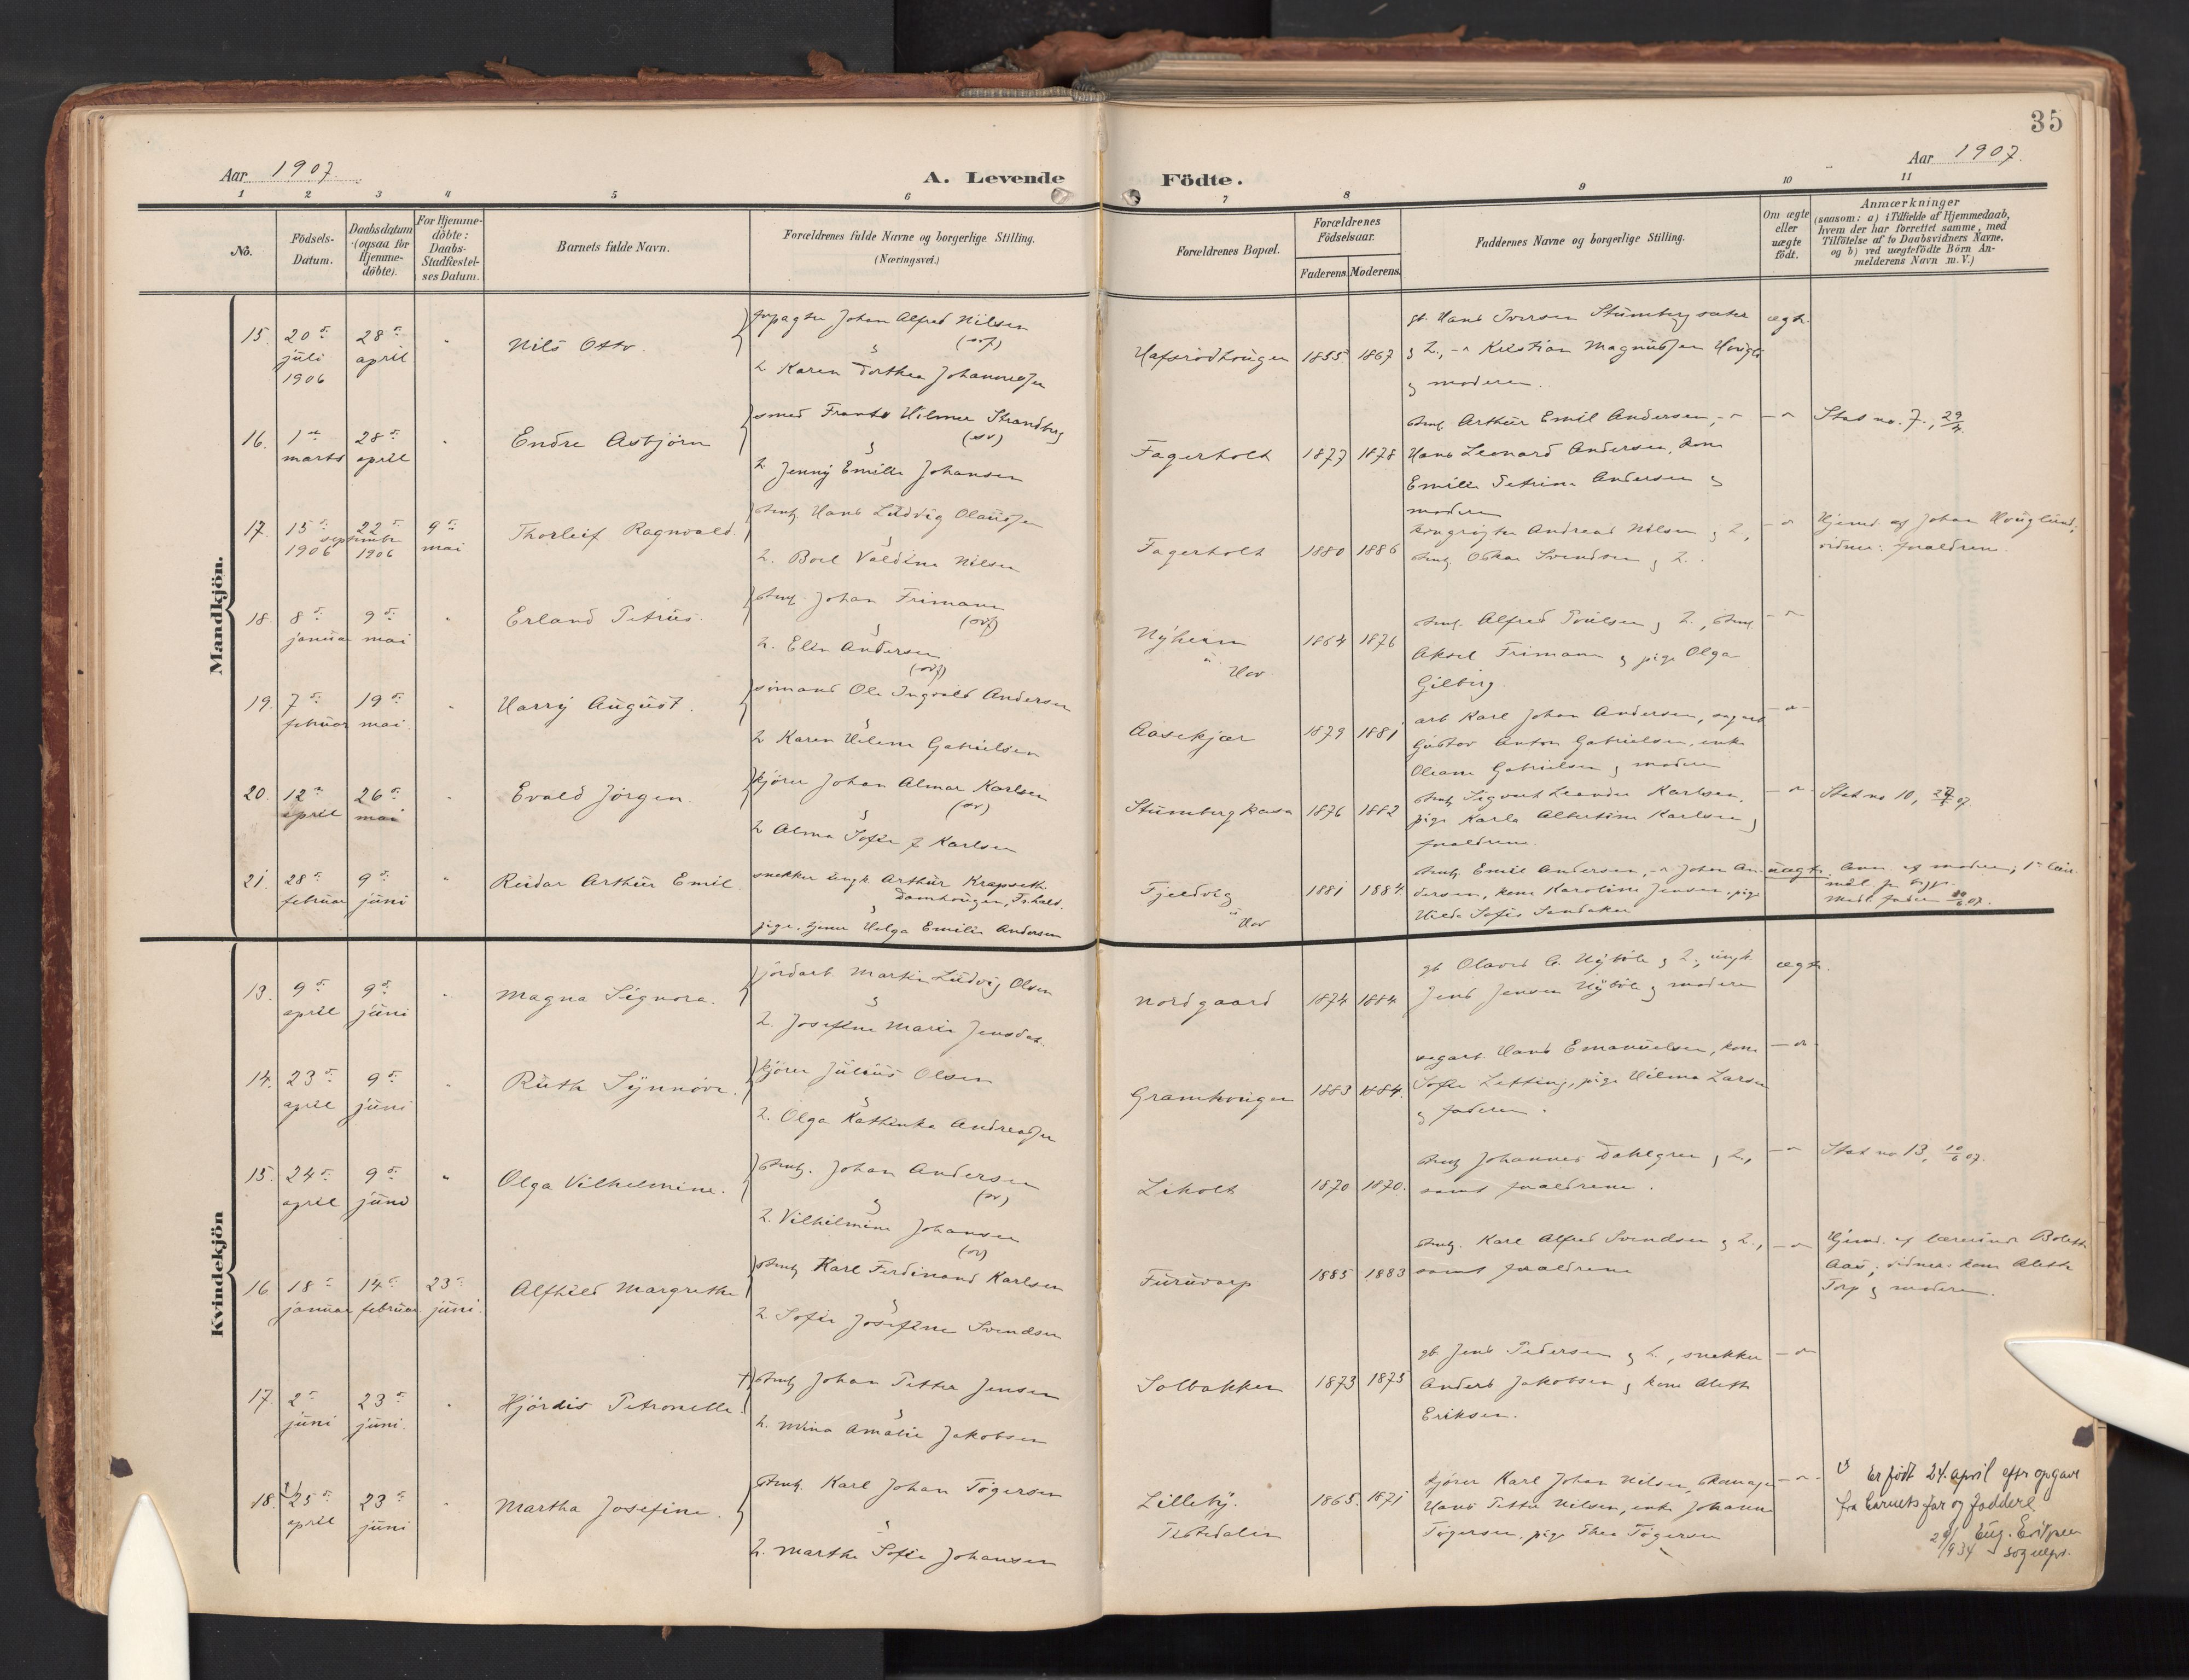 35
Aar 1907.
A. Levende Födte.
Aar 1907.
1 2 3 4 5 6 7 8 9 10 11
No.
Födsels-Datum.
Daabsdatum (ogsaa for Hjemme-döbte).
For Hjemme-döbte: Daabs-Stadfæstel-ses Datum.
Barnets fulde Navn.
Forældrenes fulde Navne og borgerlige Stilling.
(Næringsvei.)
Forældrenes Bopæl.
Forældrenes Födselsaar.
Faderens. Moderens.
Faddernes Navne og borgerlige Stilling.
Om ægte eller uægte födt.
Anmærkninger
(saasom: a) i Tilfælde af Hjemmedaab, hvem der har forrettet samme, med Tilföielse af to Daabsvidners Navne, og b) ved uægtefödte Börn An-melderens Navn m. V.)
Mandkjön.
15. 20de juli 1906 28de april " Nils Otto.
forpagter Johan Alfred Nilsen
h. Karen Dorthea Johannessen
Hafsrödhougen 1855 1867
gb. Hans Iversen Stumberg
h., Kristian Magnussen
og moderen.
ægte.
16. 1ste marts 28de april " Endre Asbjörn
smed Frants Hilmer Strandberg (sv)
h. Jenny Emilie Johansen
Fagerholt 1877 1878
Arthur Emil Andersen,
Hans Leonard Andersen, kone
Emilie Petrine Andersen og
moderen
Stat no. 7., 29/4
17. 15de september 1906 22de september 1906 9de mai Thorleif Ragnvald.
Hans Ludvig Olaussen
h. Boel Valdine Nilsen
Fagerholt 1880 1886
Andreas Nilsen og h.,
Oskar Svendsen og h.
Hjemd. af Johan Houglund;
vidner: forældrene.
18. 8de januar 9de mai " Erland Petrus.
Johan Frimann
h. Elin Andersen
Nyheim u. Hov 1864 1876
Alfred Poulsen og h.,
Aksel Frimann og pige Olga
Gilberg.
19. 7de februar 19de mai " Harry August.
sömand Ole Ingvald Andersen
h. Karen Helene Gabrielsen
Aasekjær 1879 1881
arb Karl Johan Andersen, sagarb
Gustav Anton Gabrielsen, enke
Oleane Gabrielsen og moderen
20. 12te april 26de mai " Evald Jörgen.
kjörer Johan Almar Karlsen (sv)
h. Alma Sofie f Karlsen
Stumberg 1876 1882
Sigvart Leander Karlsen,
pige Karla Albertine Karlsen og
forældrene.
Stat no 10,
21. 28de februar 9de juni " Reidar Arthur Emil
snekker ungk. Arthur Krapseth
Damhougen, Fr.hald.
og
pige, Helga Emilie Andersen
Fjeldvig u Hov 1881 1884
Emil Andersen, Johan An-
dersen, kone Karoline Jensen, pige
Hilda Sofie Sandaker
uægte. Ann. af moderen; 1ste leier-
mål
Kvindekjön
13. 9de april 9de juni " Magna Signora.
jordarb. Martin Ludvig Olsen
h. Josefine Marie Jensdat.
Nordgaard 1874 1884
gb Olaves A. Nyböle og h., ungk.
Jens Jensen Nyböle og moderen
ægte.
14. 23de april 9de juni " Ruth Synnöve.
kjörer Julius Olsen
h. Olga Kathinka Andreassen
Gramhougen 1883 1884.
sagarb. Hans Emanuelsen, kone
Sofie Letting, pige Hilma Larsen
og faderen.
15. 24de april 9de juni " Olga Vilhelmine.
Johan Andersen (sv)
h. Vilhelmine Johansen (sv)
Liholt 1870 1870.
Johannes Dahlgren og h.,
samt forældrene.
Stat no 13, 10/6 07.
16 18de januar 14de februar 23de juni. Alfhild Margrethe
Karl Ferdinand Karlsen
h. Sofie Josefine Svendsen
Furutorp 1885 1883
Karl Alfred Svendsen og h.,
samt forældrene
Hjemd. af lærerinde Bolette
Aas; vidner: kone Alette
Torp og moderen.
17. 2de juni 23de juni. " Hjördis Petronelle.
Johan Petter Jensen
h. Mina Amalie Jakobsen
Solbakken 1873 1875
gb. Jens Pedersen og h., snekker
Anders Jakobsen og kone Aleth
Eriksen.
18. 25de april 23de juni " Martha Josefine.
Karl Johan Tögersen
h. Marthe Sofie Johansen
Lilleby. Tistedalen 1865. 1871
kjörer Karl Johan Nilsen,
Hans Petter Nilsen, enke Johanne
Tögersen, pige Thea Tögersen
1) Er födt 24. april eftr opgave
fra barnets far og faddere
29/1 1934 Eug.
sognepr.